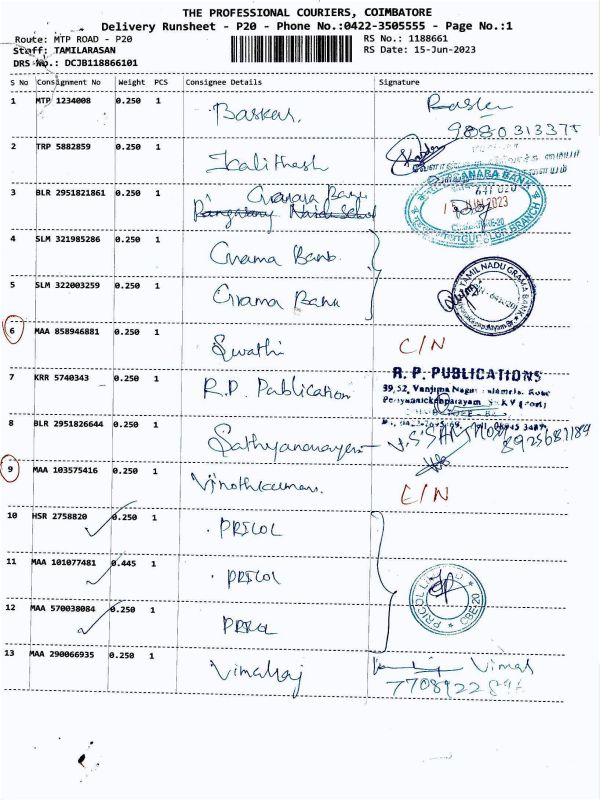 THE PROFESSIONAL COURIERS, COIMBATORE
Delivery Runsheet - P20 - Phone No.:0422-3505555 - Page No.:1
Route: MTP ROAD - P20 RS No.: 1188661
Staff: TAMILARASAN RS Date: 15-Jun-2023
DRS No.: DCJB118866101
S No Consignment No Weight PCS Consignee Details Signature
1 MTP 1234008 0.250 1 Baskar
9880313375
2 TRP 5882859 0.250 1
3 BLR 2951821861 0.250 1 Canara Bank
CANARA BANK
JUN 2023
BRANCH
4 SLM 321985286 0.250 1 Grama Bank
5 SLM 322003259 0.250 1 Grama Bank
TAMIL NADU GRAMA BANK
6 MAA 858946881 0.250 1 Swathi C/N
7 KRR 5740343 0.250 1 R.P. Publication
R.P. PUBLICATIONS
39, 52, Vanjima Nagar
8 BLR 2951826644 0.250 1 Sathyanarayan
8925681189
9 MAA 103575416 0.250 1 Vinothkumar E/N
10 HSR 2758820 0.250 1 PRICOL
11 MAA 101077481 0.445 1 PRICOL
12 MAA 570038084 0.250 1 PRICOL
PRICOL LIMITED CBE-20
13 MAA 290066935 0.250 1 Vimalraj Vimal